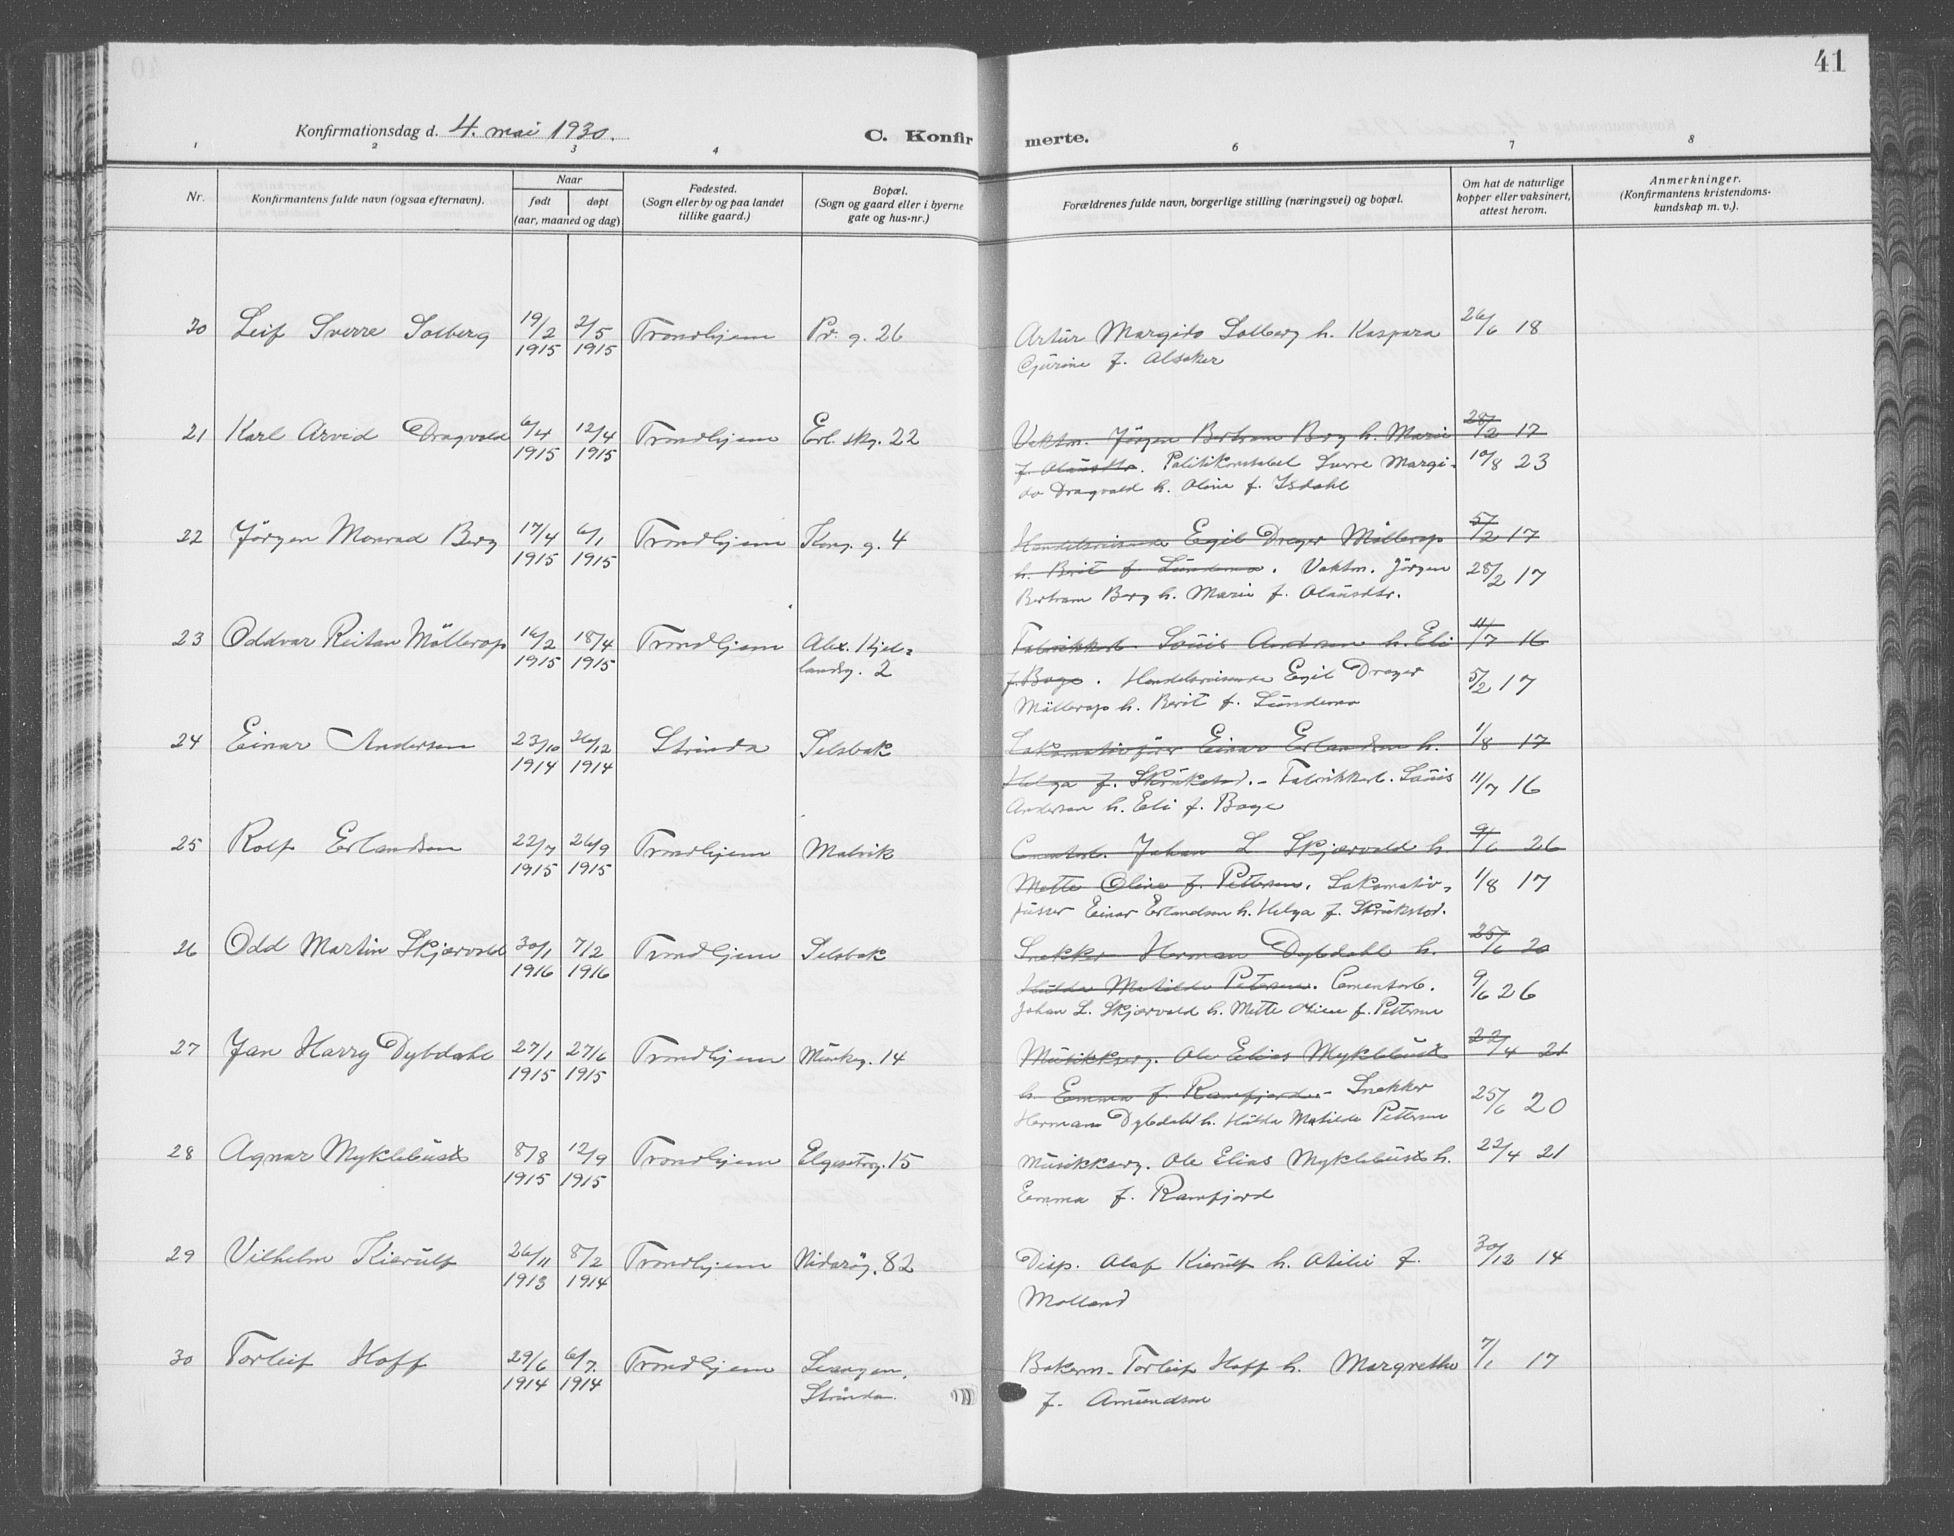 41
Konfirmationsdag d. 4. mai 1930.
C. Konfir merte.
1 2 3 4 6 7 8
Nr.
Konfirmantens fulde navn (ogsaa efternavn).
Naar
født døpt
(aar, maaned og dag)
Fødested.
(Sogn eller by og paa landet
tillike gaard.)
Bopæl.
(Sogn og gaard eller i byerne
gate og hus-nr.)
Forældrenes fulde navn, borgerlige stilling (næringsvei) og bopæl.
Om hat de naturlige
kopper eller vaksinert,
attest herom.
Anmerkninger.
(Konfirmantens kristendoms-
kundskap m. v.).
20 Leif Sverre Solberg 19/2 2/5 Trondhjem Pr. g. 26 Artur Margido Solberg h. Kaspara 26/6 18
1915 1915 Gjurine f. Alseker
21 Karl Arvid Dragvold 6/4 12/4 Trondhjem Erl. skg. 22 Vaktm. Jörgen Bertram Berg h. Marie 28/2 17
1915 1915 f. Olausdtr. Politikonstabel Sverre Margi- 10/8 23
do Dragvold h. Oline f. Isdahl
22 Jörgen Monrad Berg 17/4 6/1 Trondhjem Kong. g. 4 Handelsreisende Egil Dreyer Möllerop 5/2 17
1915 1915 h. Berit f. Lundemo. Vaktm. Jörgen 28/2 17
Bertram Berg h. Marie f. Olausdtr.
23 Oddvar Reitan Möllerop 16/2 18/4 Trondhjem Alex. Kjel- Fabrikkarb. Louis Andersen h. Eli 11/7 16
1915 1915 landsg. 2 f. Boge. Handelsreisende Egil Dreyer 5/2 17
Möllerop h. Berit f. Lundemo
24 Einar Andersen 23/10 26/12 Strinda Selsbak Lokomotivför Einar Erlandsen h. 1/8 17
1914 1914 Helga f. Skrukstad. - Fabrikkarb. Louis 11/7 16
Andersen h. Eli f. Boge
25 Rolf Erlandsen 22/7 26/9 Trondhjem Malvik Cementarb. Johan L Skjærvold h. 9/6 26
1915 1915 Mette Oline f. Pettersen. Lokomotiv- 1/8 17
pusser Einar Erlandsen h. Helga f. Skrukstod.
26 Odd Martin Skjærvold 30/1 7/2 Trondhjem Selsbak Snekker Herman Dybdahl h. 25/6 20
1916 1916 Hulda Matilde Petersen. Cementarb. 9/6 26
Johan L. Skjærvold h. Mette Oline f. Pettersen
27 Jan Harry Dybdahl 27/1 27/6 Trondhjem Munkg. 14 Musikkserg. Ole Elias Myklebust 22/4 21
1915 1915 h. Emma f. Ramfjord - Snekker 25/6 20
Herman Dybdahl h. Hulda Matilde Pettersen
28 Agnar Myklebust 8/8 12/9 Trondhjem Elgeseterg. 15 Musikkserg. Ole Elias Myklebust h. 22/4 21
1915 1915 Emma f. Ramfjord
29 Vilhelm Kierulf 26/11 8/2 Trondhjem Nidarög. 82 Disp. Olaf Kierulf h. Otilie f. 30/12 14
1913 1914 Molland
30 Torleif Hoff 29/6 6/7 Trondhjem Leangen, Bakerm. Torleif Hoff h. Margrethe 7/1 17
1914 1914 Strinda. f. Amundsen